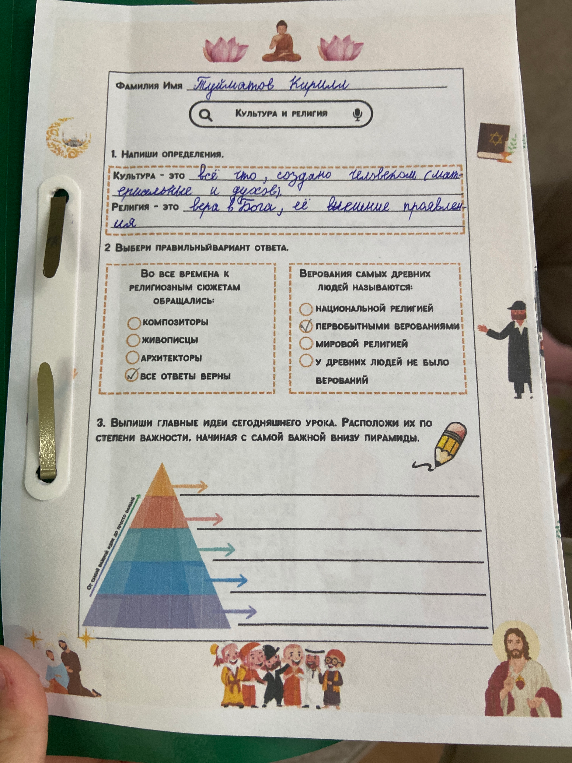 Фамилия Имя Туйматов Кирилл
Культура и религия
1. Напиши определения.
Культура - это всё что, создано человеком (мат-
ериальные и духов)
Религия - это вера в Бога, её внешние проявлен-
ия
2 Выбери правильныйвариант ответа.
Во все времена к
религиозным сюжетам
обращались:
композиторы
живописцы
архитекторы
все ответы верны
Верования самых древних
людей называются:
национальной религией
первобытными верованиями
мировой религией
у древних людей не было
верований
3. Выпиши главные идеи сегодняшнего урока. Расположи их по
степени важности, начиная с самой важной внизу пирамиды.
От самой важной идеи до просто важной